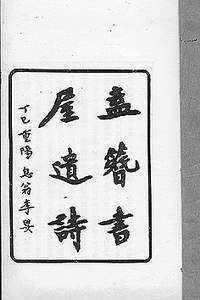 盍簪書
屋遺詩
丁巳重陽息翁李嬰